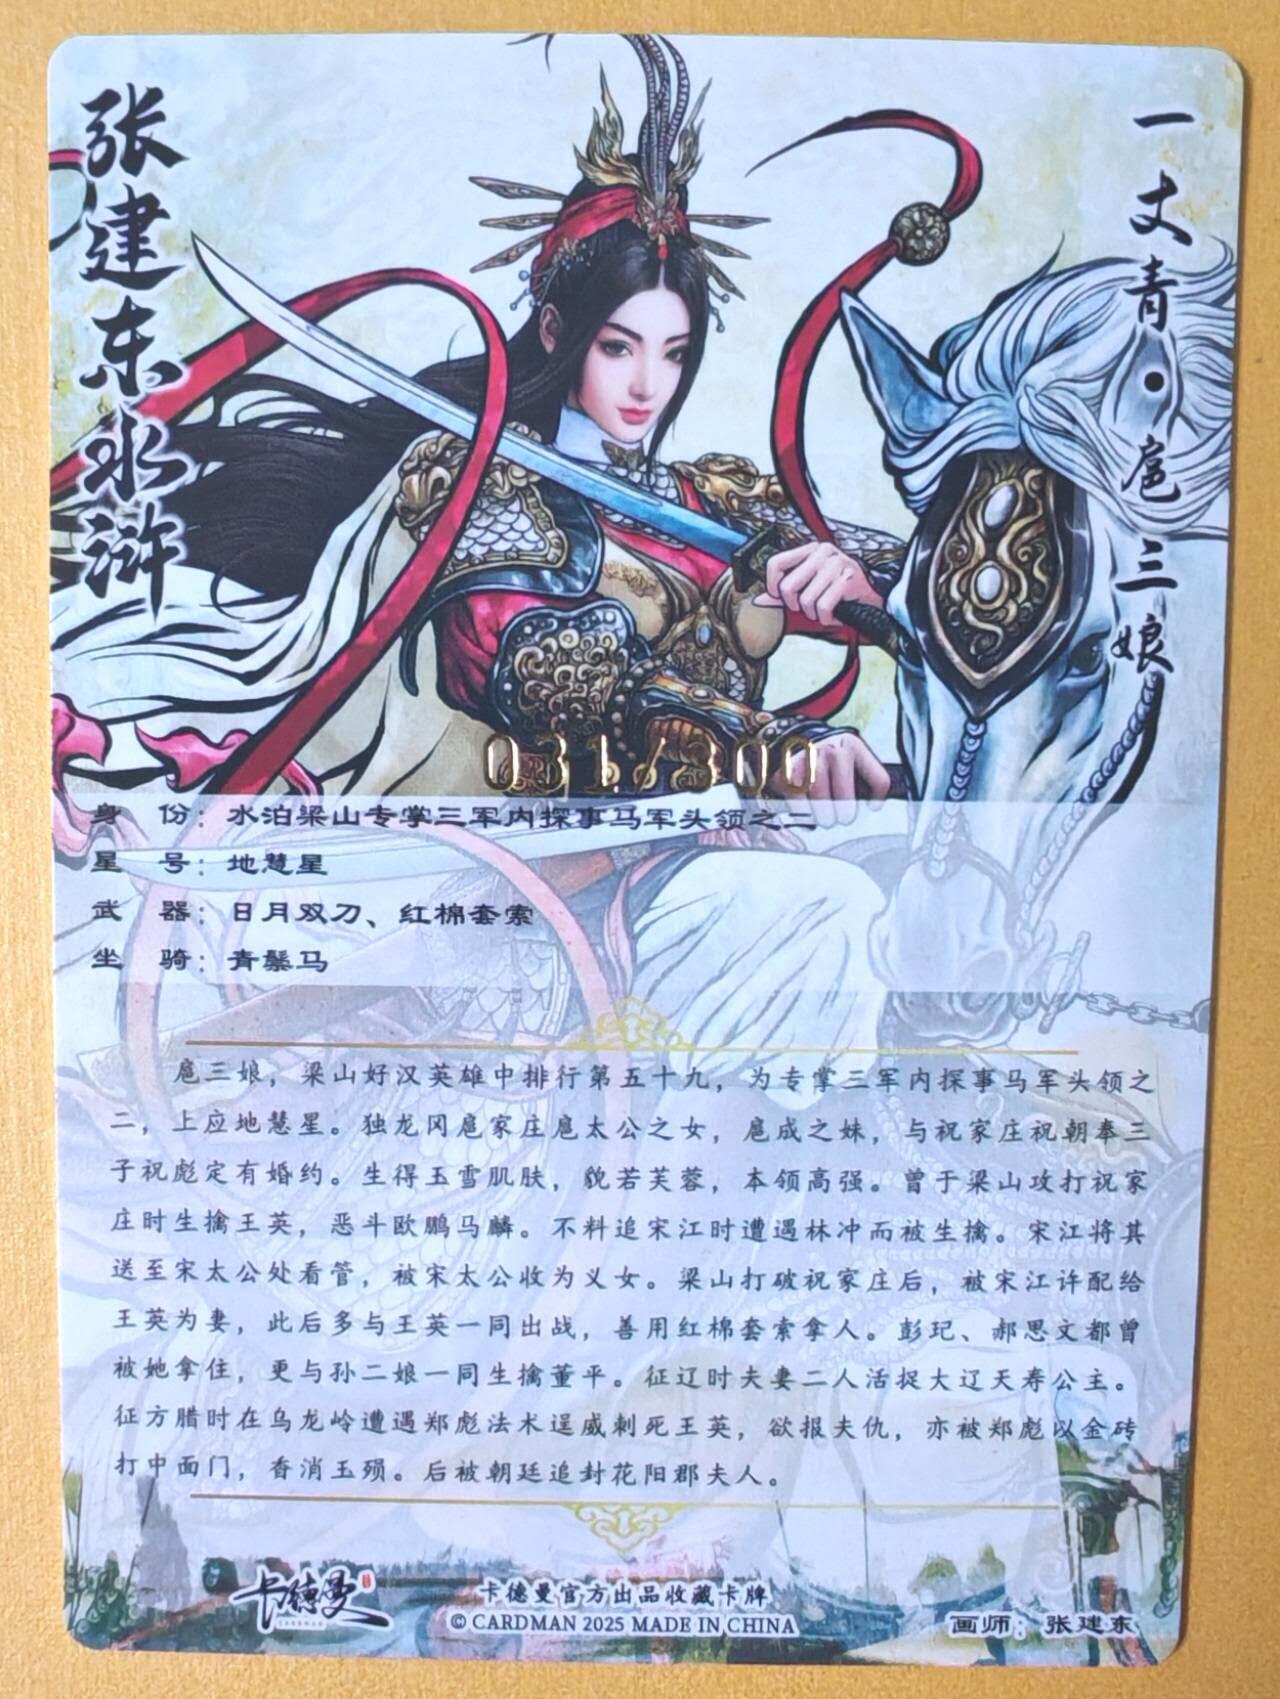 张建东水浒
一丈青·扈三娘
031/300
身 份：水泊梁山专掌三军内探事马军头领之二
星 号：地慧星
武 器：日月双刀、红棉套索
坐 骑：青鬃马
扈三娘，梁山好汉英雄中排行第五十九，为专掌三军内探事马军头领之
二，上应地慧星。独龙冈扈家庄扈太公之女，扈成之妹，与祝家庄祝朝奉三
子祝彪定有婚约。生得玉雪肌肤，貌若芙蓉，本领高强。曾于梁山攻打祝家
庄时生擒王英，恶斗欧鹏马麟。不料追宋江时遭遇林冲而被生擒。宋江将其
送至宋太公处看管，被宋太公收为义女。梁山打破祝家庄后，被宋江许配给
王英为妻，此后多与王英一同出战，善用红棉套索拿人。彭玘、郝思文都曾
被她拿住，更与孙二娘一同生擒董平。征辽时夫妻二人活捉大辽天寿公主。
征方腊时在乌龙岭遭遇郑彪法术逞威刺死王英，欲报夫仇，亦被郑彪以金砖
打中面门，香消玉殒。后被朝廷追封花阳郡夫人。
卡德曼
CARDMAN
卡德曼官方出品收藏卡牌
© CARDMAN 2025 MADE IN CHINA
画师：张建东